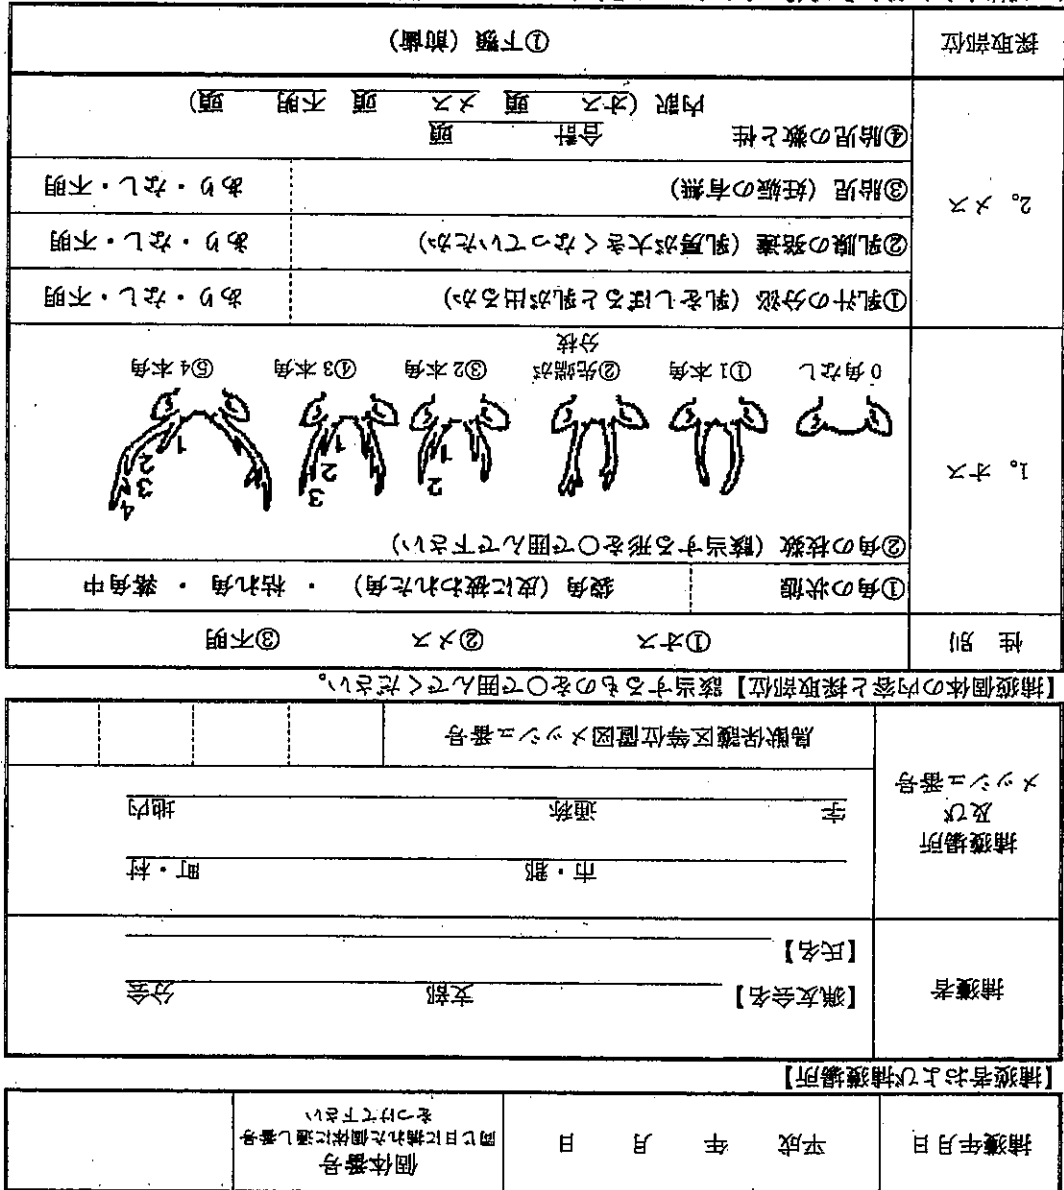 捕獲年月日 平成 年 月 日 個体番号
同じ日に捕れた個体に通し番号
をつけて下さい
【捕獲者および捕獲場所】
捕獲者 【猟友会名】 支部 分会
【氏名】
捕獲場所
及び
メッシュ番号
市・郡 町・村
字 通称 地内
鳥獣保護区等位置図メッシュ番号
【捕獲個体の内容と採取部位】該当するものを○で囲んでください。
性 別 ①オス ②メス ③不明
1。オス
①角の状態 袋角(皮に被われた角) ・ 枯れ角 ・ 落角中
②角の枝数(該当する形を○で囲んで下さい)
1 2 1 2 3 1 2 3 4
0角なし ①1本角 ②先端が
分枝
③2本角 ④3本角 ⑤4本角
2。メス
①乳汁の分泌(乳をしぼると乳が出るか) あり・なし・不明
②乳腺の発達(乳房が大きくなっていたか) あり・なし・不明
③胎児(妊娠の有無) あり・なし・不明
④胎児の数と性 合計 頭
内訳(オス 頭 メス 頭 不明 頭)
採取部位 ①下顎(前歯)